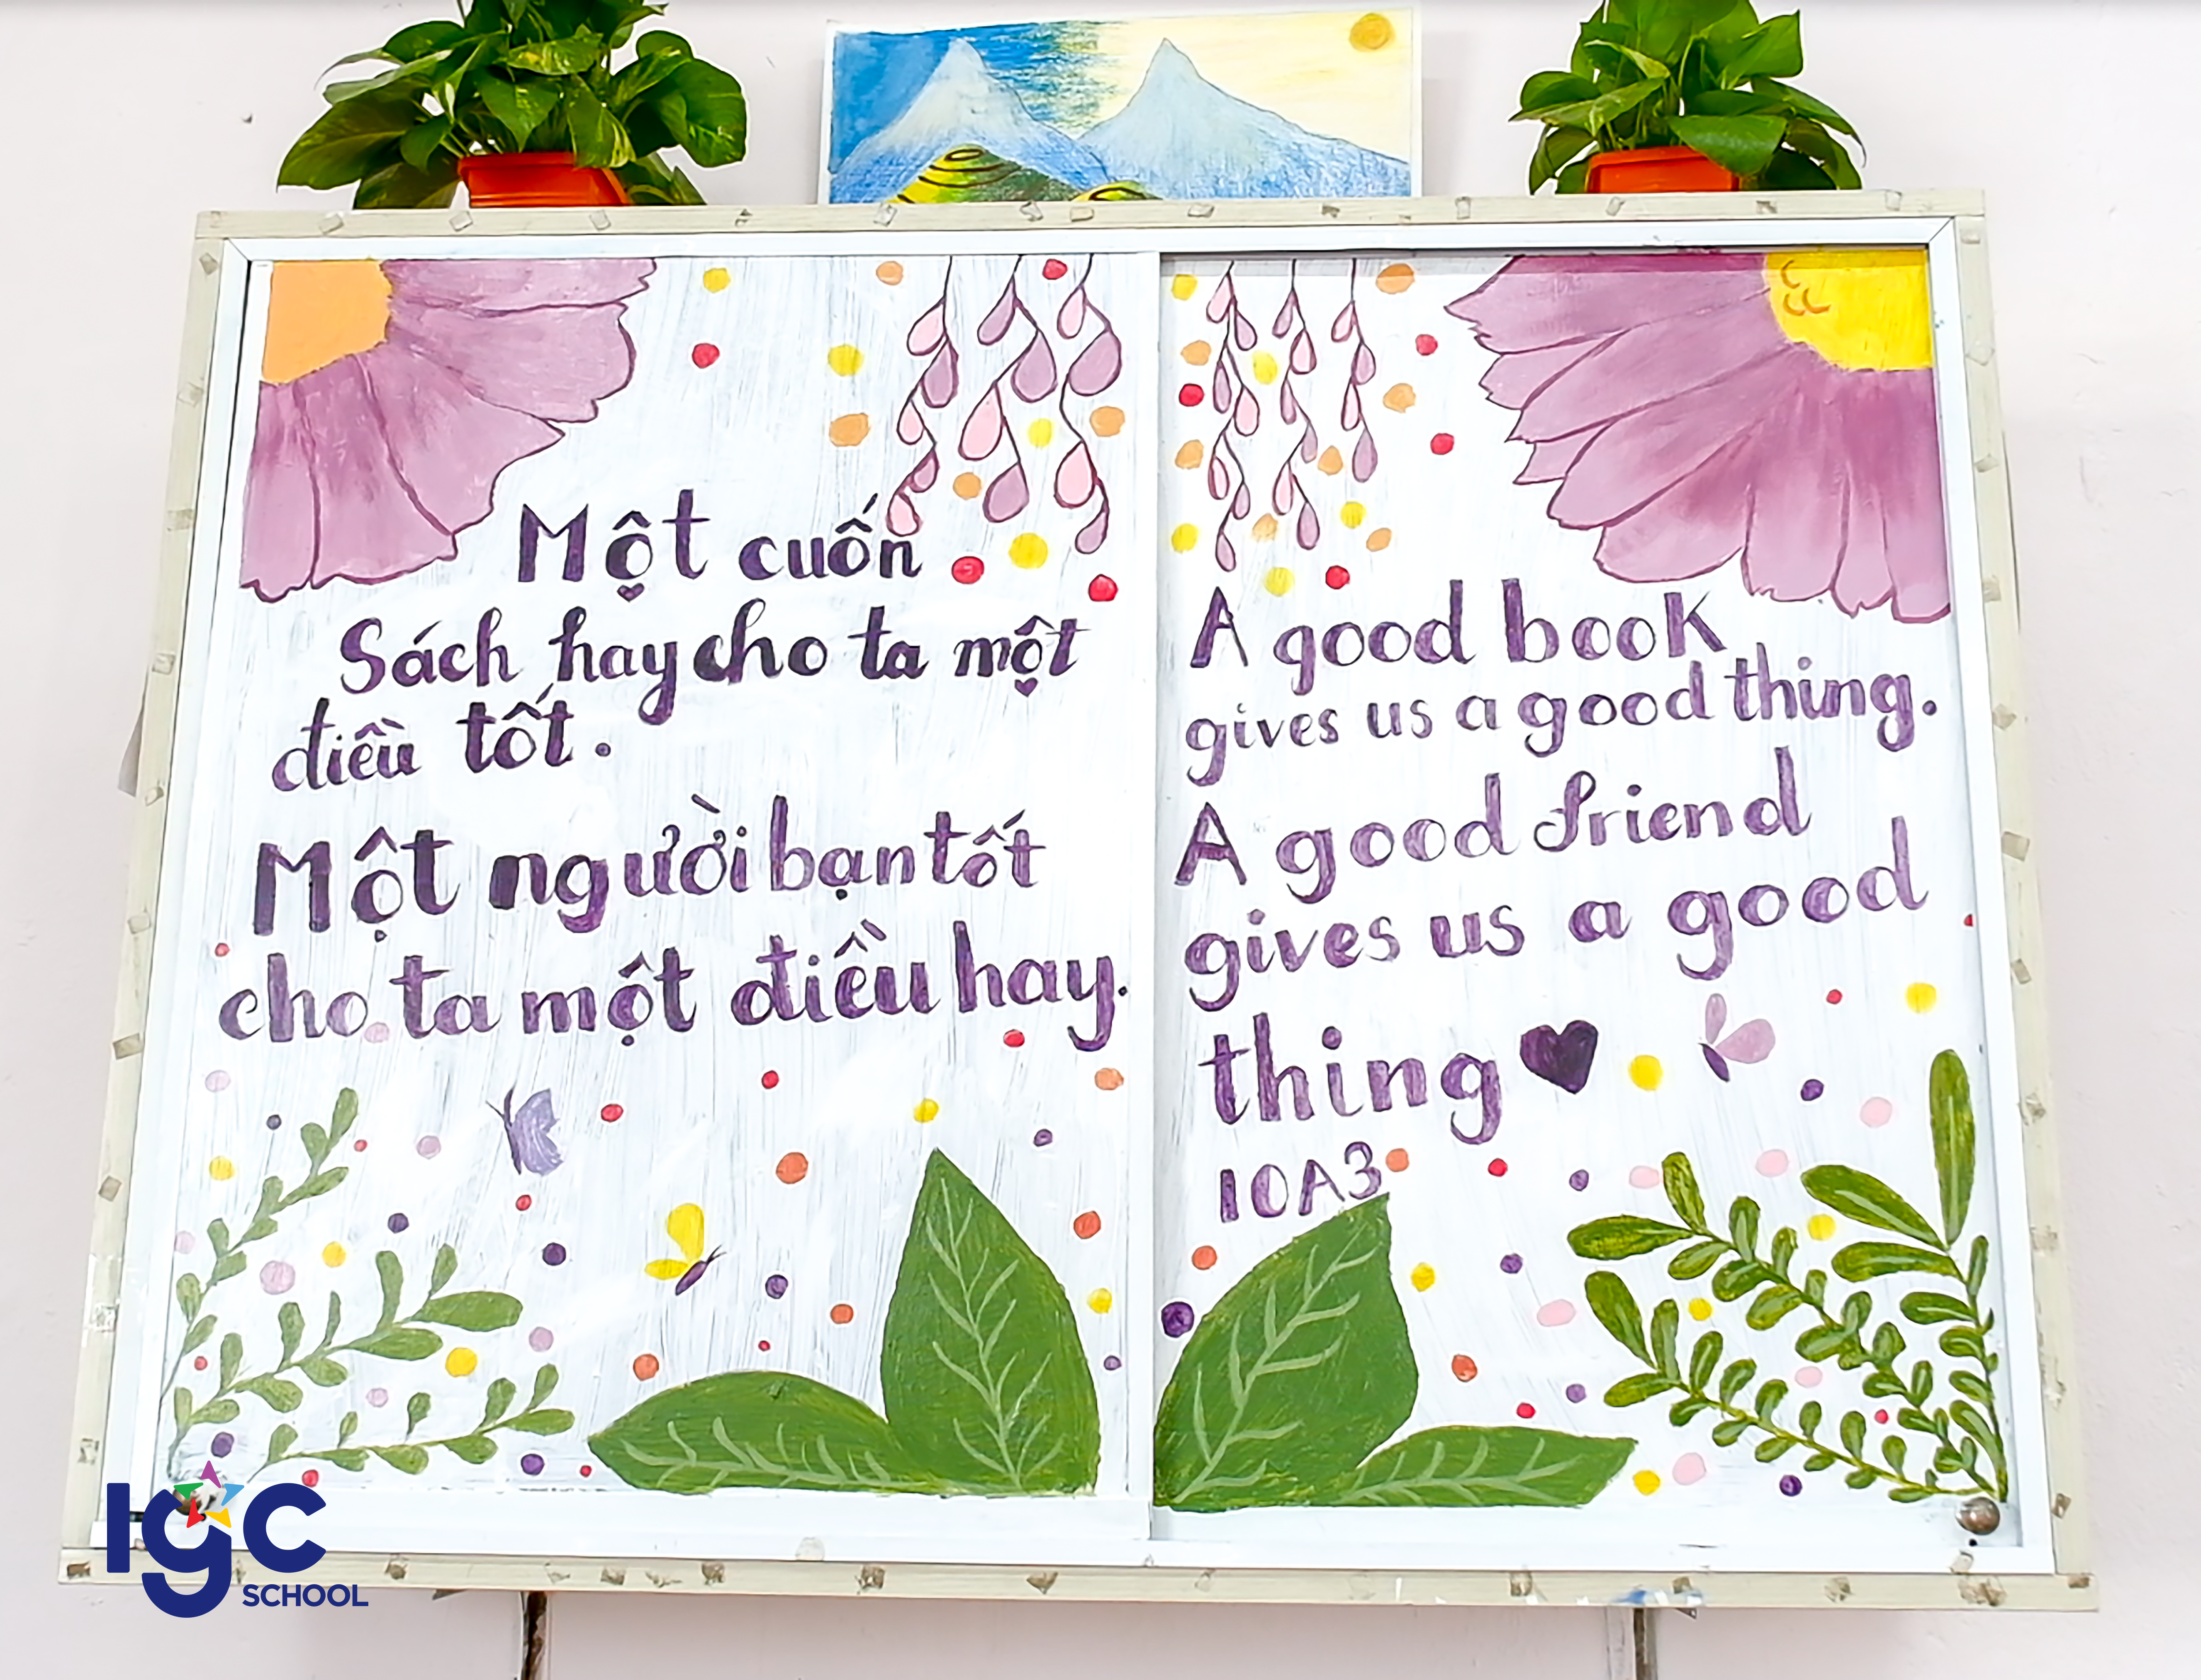 Một cuốn
Sách hay cho ta một
điều tốt.
Một người bạn tốt
cho ta một điều hay.
A good book
gives us a good thing.
A good friend
gives us a good
thing
10A3
IGC
SCHOOL